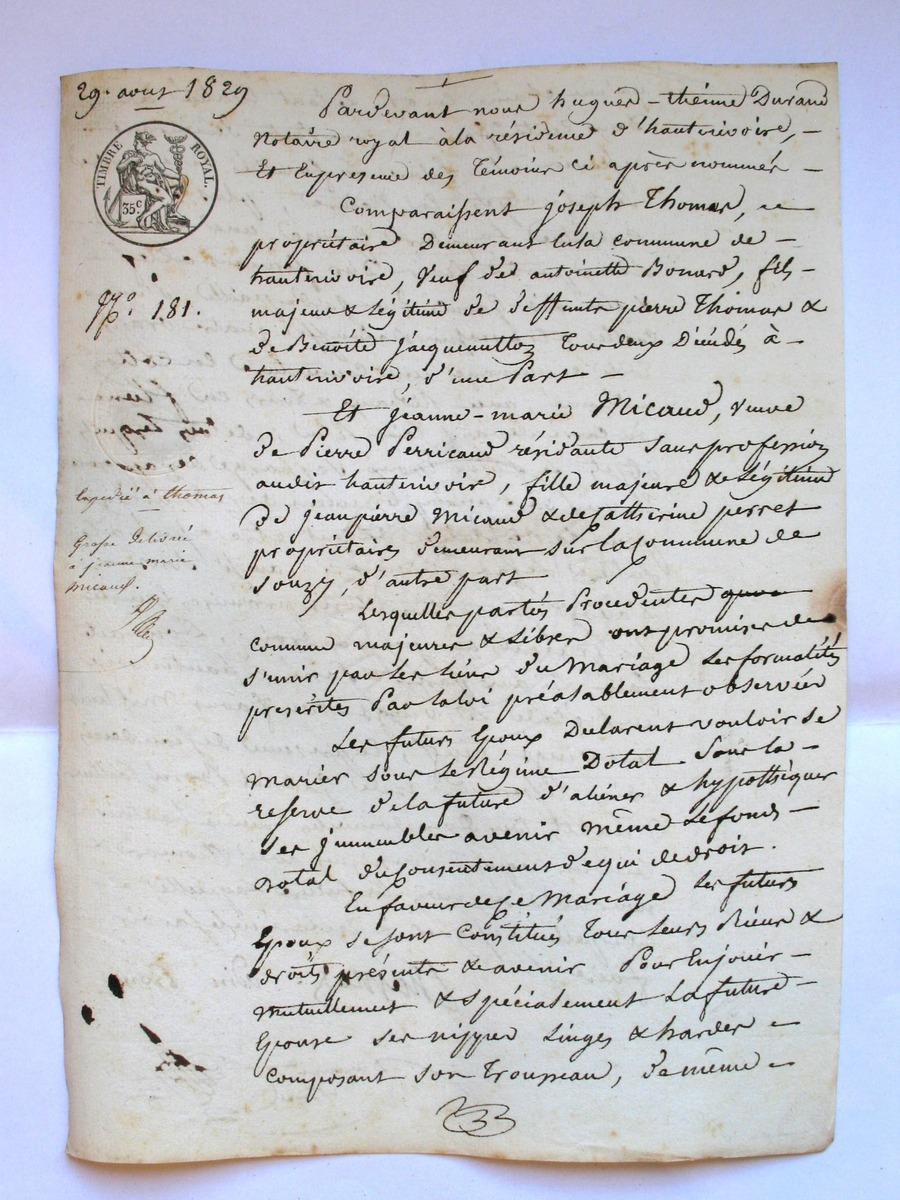 29. aout 1829
TIMBRE ROYAL.
35 c.
N.o 181.
Expédié à thomas
Grosse délivrée
à jeanne marie
Micaud.
Pardevant nous hugues-thiénne Durand
Notaire royal à la résidence d'hauterivoire, -
Et En presence des Témoins ci après nommés -
Comparaissent joseph Thomas,
propriétaire Demeurant sur la commune de -
hauterivoire, Veuf de antoinette Bonard, fils -
majeur & légitime de deffunts pierre Thomas &
de Benoîte jacquemettoz Tous deux Décédés à -
hauterivoire, d'une Part -
Et jeanne-marie Micaud, veuve
de Pierre Perricaud résidante sans profession
audit hauterivoire, fille majeure & légitime
de jean pierre Micaud & de Catherine perret
propriétaires demeurant sur la Commune de
Souzy, d'autre part
Lesquelles parties Procedentes
comme majeures & libres ont promises de
s'unir par les liens du Mariage les formalités
prescrites Par la loi préalablement observées
Les futurs Epoux Déclarent vouloir se
marier sous le Régime Dotal sous la -
reserve de la future d'aliéner & hypothéquer
ses jmmeubles avenir même le fonds -
dotal du Consentement de qui de droit.
En faveur de Ce Mariage les futurs
Epoux se sont Constitués Tous leurs Biens &
droits présents & avenir Pour En jouir -
mutuellement & spécialement la future -
Epouse ses nippes linges & hardes -
composant son Trousseau, de même -